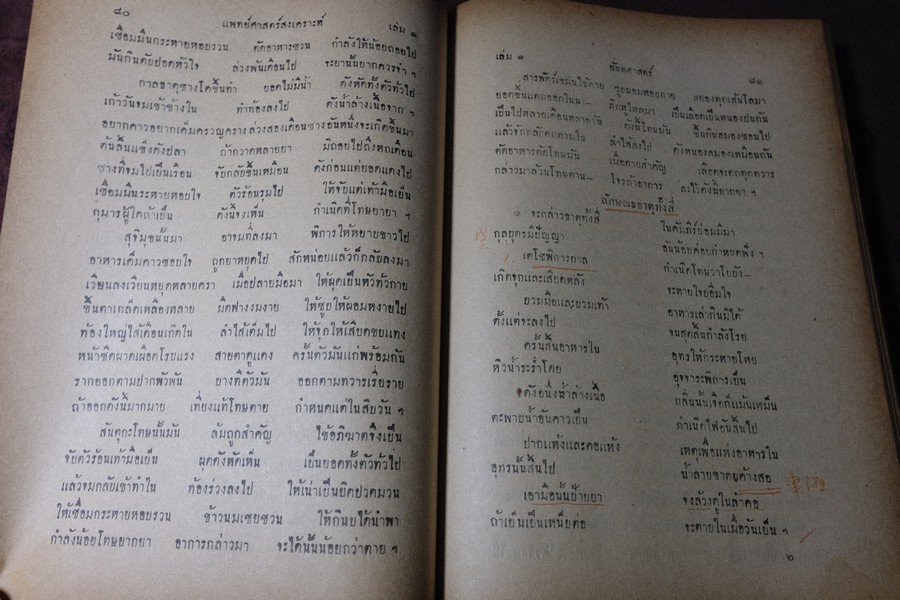 ๘๐ แพทย์ศาสตร์สงเคราะห์ เล่ม ๑
เชื่อมมึนกระหายหอยรวน คัดอาหารชวน กำลังให้น้อยถอยไป
มันกินตับปอดหัวใจ ล่วงพ้นเดือนไป จะยานั้นยากควรจำ ฯ
กาลธาตุซางโคขึ้นทำ ยอดไม่มีน้ำ ดังหัดทั้งตัวทั่วไป
เก้าวันจมเข้าข้างใน ทำท้องลงไป ดังน้ำล้างเนื้อจาก ฯ
อยากคาวอยากเค็มครวญคราง ล่วงสองเดือนซาง อันหนึ่งจะเกิดขึ้นมา
ต้นลิ้นแข็งดังปลา ถ้ากวาดหลายยา มิถอยไปถึงหกเดือน
ซางที่จมไปเป็นเรือน จับกลัยขึ้นเหมือน ดังก่อนแต่ยอดแดงไป
เชื่อมมึนระหายหอยใจ ตัวร้อนรุมไป ให้จับแต่เท้ามือเย็น
กุมารผู้ใดถ้าเย็น ดังนี้จงเห็น กำเนิดที่โทษยายา ฯ
สุจิมุขนั้นมา อาจมที่ลงมา พิการให้หยายขาวไป
อาหารเค็มคาวชอบใจ ถูกยาหยุดไป สักหน่อยแล้วก็กลับลงมา
เวียนลงเวียนหยุดหลายครา เมื่อปลายมือมา ให้ผุดเป็นหัวทั้วกาย
ขึ้นตาเกล็ดเหลืองหลาย มืดฟางงมงาย ให้ซูบให้ผอมหงายไป
ท้องใหญ่ไส้เดือนเกิดใน ลำไส้เต็มไป ให้จุกให้เสียดขบแทง
หน้าซีดผาดเผือดโรยแรง สายตาดูแดง ครั้นตัวมันแก่พร้อมกัน
รากออกตามปากพัวพัน บางทีตัวมัน ออกตามทวารเรี่ยราย
ถ้าออกดังนี้มากมาย เที่ยงแท้โทษตาย กำหนดแต่ในสิบวัน ฯ
สันตุกะโทษนั้นมัน ล้มถูกสำคัญ ไข้อภิฆาตจึงเป็น
จับตัวร้อนเท้ามือเย็น ผุดดังหัดเห็น เป็นยอดทั้งตัวทั่วไป
แล้วจมกลับเข้าทำใน ท้องร่วงลงไป ให้เน่าเป็นบิดปวดมวน
ให้เชื่อมกระหายหอบรวน ข้าวนมเชยชวน ให้กินบได้นำพา
กำลังน้อยโทษยากยา อาการกล่าวมา จะได้นั้นน้อยกว่าตาย ฯ
เล่ม ๑ ฉันทศาสตร์ ๘๑
สารพัดร์เขม่นไข้กาย ซูบผอมหอยกาย สยองทุกเส้นโลมา
ยอดขึ้นแตกออกในนา– สิกหูไหลมา เป็นเลือดเป็นหนองปนกัน
เป็นไปหลายเดือนหลายวัน ดังนี้โทษมัน ขึ้นกินสมองซอนไป
แล้วจักกลัดตกภายใน ลำไส้ลงไป ดังหนองสมองเหมือนกัน
คัดอาหารคัดโทษมัน เมื่อตายสำคัญ เลือดจะตกทุกทวาร
กล่าวมาล้วนโทษตาน– โจรถ้าอาการ ละไว้ดังนี้ยากยา ฯ
ลักษณะธาตุทั้งสี่
๏ จะกล่าวธาตุทั้งสี่ ในคัมภีร์ย่อมมีมา
กุลบุตรมีปัญญา อันน้อยค่อยกำหนดพึง ฯ
เตโชพิการกาล กำเนิดโทษวาโยยัง–
เกิดจุกและเสียดหลัง จะหายใจบอิ่มใจ
บวมมือและบวมเท้า อาหารเล่ากินมิได้
ตั้งแต่จะลงไป จนสุดสิ้นกำลังโรย
ครั้นสิ้นอาหารใน อุทรให้กระหายโหย
หิวน้ำระร่ำโดย อุจจาระพิการเป็น
ดังหนึ่งน้ำล้างเนื้อ กลิ่นนั้นเจือก็แม้นเหม็น
ตะพาบน้ำอันคาวเป็น กำเนิดไฟอันสิ้นไป
ปากแห้งและคอแห้ง เหตุเพื่อแห้งอาหารใน
อุทรนั้นสิ้นไป น้ำลายขาดบค้างสอ
เอามือนั้นป้ายยา จงล้วงดูในลำคอ
ถ้าเย็นเป็นเหนี่ยต่อ จะตายในเมื่อวันเย็น ฯ
๖